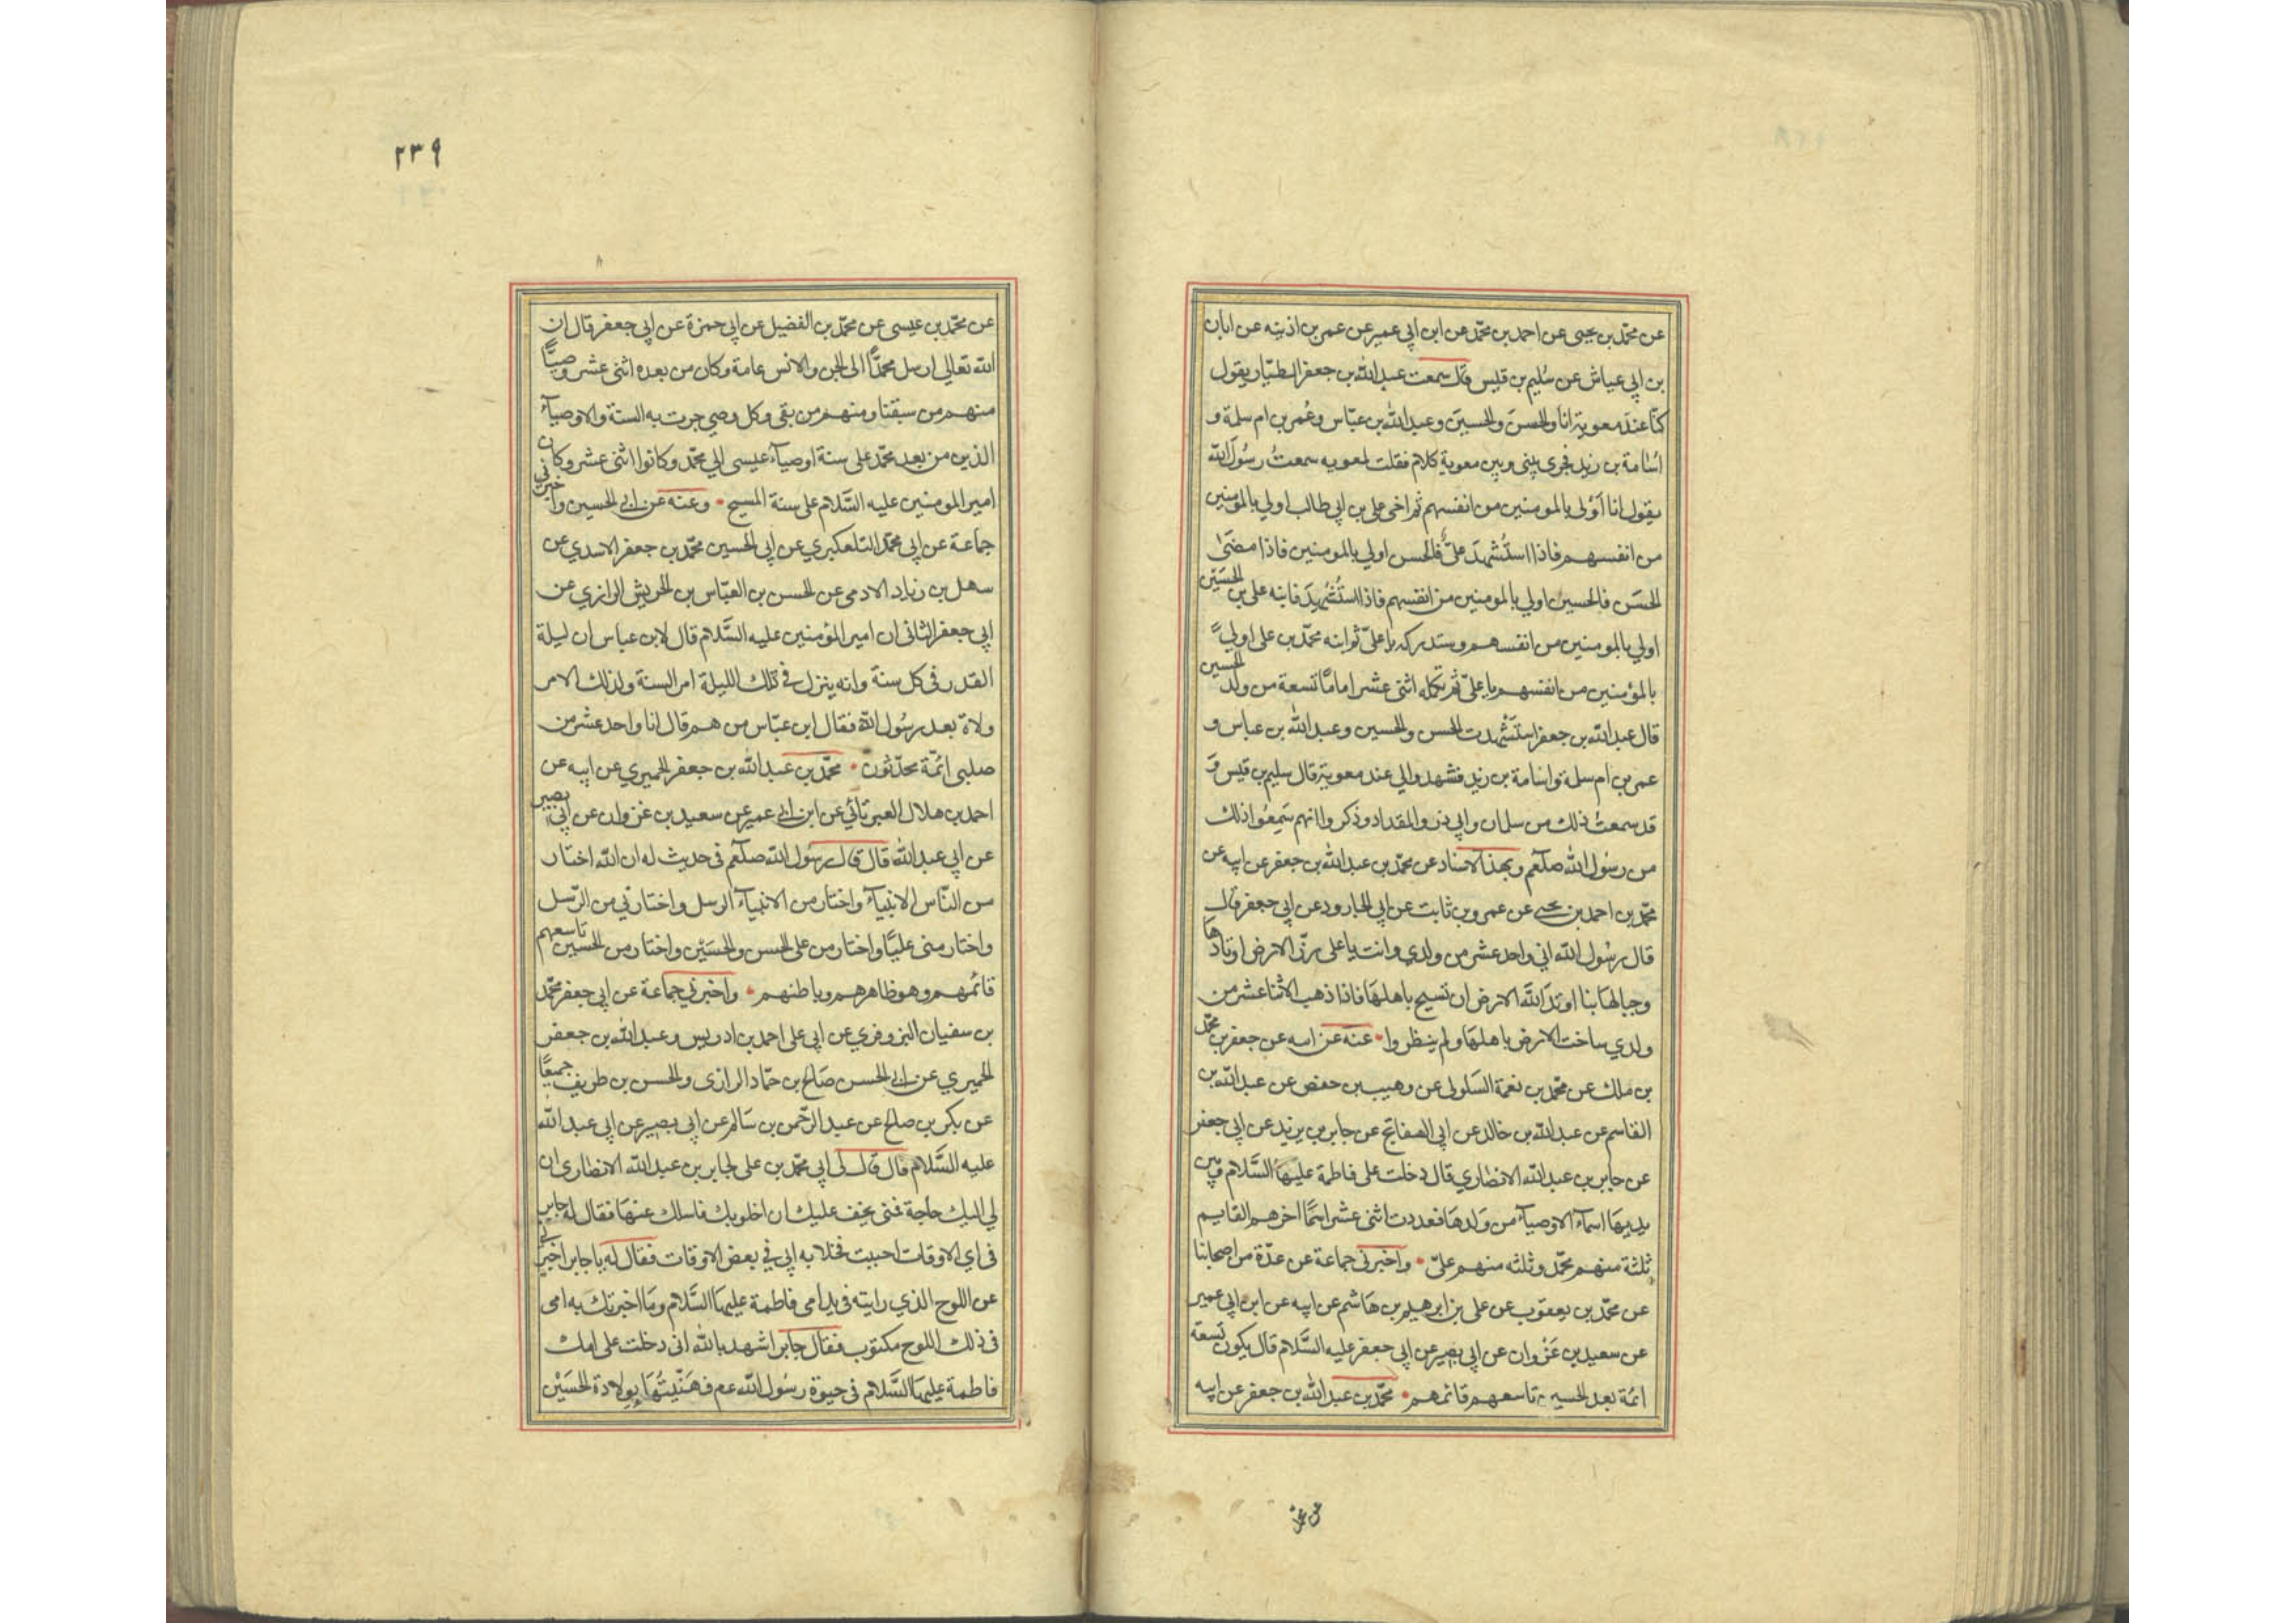 عن محمّد بن يحيى عن احمد بن محمّد عن ابن ابي عمير عن عمر بن اذينه عن ابان
بن ابي عياش عن سُليم بن قليس قال سمعت عبد الله بن جعفر الطيّار يقول
كنّا عند معوية انا والحسنَ والحسينَ وعبد الله بن عبّاس وعُمر بن ام سلمة و
اسُامة بن زيد فجرى بيني وبين معوية كلام فقلت لمعويه سمعتُ رسُول الله
يقول انا اَوْلى بالمومنين من انفسهم ثم اخي علي بن ابي طالب اولي بالمومنين
من انفسهم فاذا استُشهدَ علىٌّ فالحسن اولي بالمومنين فاذا مضىٰ
الحسَن فالحسين اولي بالمومنين من انفسهم فاذا استُشُهِدَ فابنه على بن الحسَيْن
اولي بالمومنين من انفسهم وستدركه يا علىّ ثم ابنه محمّد بن على اولي
بالمؤمنين من انفسهم يا علىّ ثم تكمله اثنى عشر امامًا تسعة من ولد الحسين
قال عبد الله بن جعفر استَشْهدت الحسن والحسين وعبد الله بن عباس و
عمر بن ام سلمة واسامة بن زيد فشهدوا لي عند معوية قال سليم بن قيس وَ
قد سمعتُ ذلك من سلمان وابي ذر والمقداد وذكروا انهم سَمِعُوا ذلك
من رسُول الله صلّعم وبهذا الاسناد عن محمّد بن عبد الله بن جعفر عن ابيه عن
محمّد بن احمد بن يحيى عن عمرو بن ثابت عن ابي الجارود عن ابي جعفر قال
قال رسُول الله اني واحد عشر من ولدي وانت يا على رزّ الارض اوتادها
وجبالهَا بنا اوتدَ اللَّه الارض ان تسيح باهلهَا فاذا ذهب الاثنا عشر من
ولدي ساخت الارض باهلهَا ولم ينظروا عنه عن ابيه عن جعفر بن محمّد
بن ملك عن محمّد بن نعمة السَلولى عن وهيب بن حفص عن عبد الله بن
القاسم عن عبد الله بن خالد عن ابي الصفاتج عن جابر بن يزيد عن ابي جعفر
عن جابر بن عبد الله الانصاري قال دخلت على فاطمة عليهَا السَّلام وبين
يديهَا اسمآء الاوصيآء من وَلدهَا فعددت اثنى عشر اسمًا اخرهم القايم
ثلثة منهم محمّد وثلثه منهم علىّ واخبرني جماعة عن عدّة من اصحابنا
عن محمّد بن يعقوب عن على بن ابرهيم بن هَاشم عن ابيه عن ابن ابي عمير
عن سعيد بن غَزْوان عن ابي بصير عن ابي جعفر عليه السَّلام قال يكون تسعة
ائمة بعد الحسين تاسعهم قائمهم محمّد بن عبد الله بن جعفر عن ابيه
٢٣٩
عن محمّد بن عيسى عن محمّد بن الفضيل عن ابي حمزة عن ابي جعفر قال ان
الله تعالي ارسل محمّدًا الى الجن والانس عامة وكان من بعده اثنى عشر وصيًّا
منهم من سبقنا ومنهم من بقى وكل وصي جرت به السنة والاوصيآء
الذين من بعد محمّد على سنة اوصيآء عيسى الي محمّد وكانوا اثنى عشر وكان
امير المومنين عليه السَّلام على سنة المسيح وعنه عن ابي الحسين واخبرني
جماعة عن ابي محمّد التلعكبري عن ابي الحسين محمّد بن جعفر الاسدي عن
سهل بن زياد الادمى عن الحسن بن العبّاس بن الحريش الرازي عن
ابي جعفر الثانى ان امير المؤمنين عليه السَّلام قال لابن عباس ان ليلة
القدر في كل سنة وانه ينزل في تلك الليلة امر السنة ولذلك الامر
ولاة بعد رسُول الله فقال ابن عبّاس من هم قال انا واحد عشر من
صلبى ائمّة محدّثون محمّد بن عبد الله بن جعفر الحميري عن ابيه عن
احمد بن هلال العبرتائي عن ابن ابي عمير عن سعيد بن غزوان عن ابي بصير
عن ابي عبد الله قال قال رسُول الله صلّعم في حديث له ان الله اختار
من النّاس الانبيآء واختار من الانبيآء الرسل واختارني من الرّسل
واختار منى عليًّا واختار من على الحسن والحسَيْن واختار من الحسين تاسعهم
قائمهم وهو ظاهرهم وباطنهم واخبرني جماعة عن ابي جعفر محمّد
بن سفيان البزوفري عن ابي على احمد بن ادريس وعبد الله بن جعفر
الحميري عن ابي الحسن صَالح بن حمّاد الرازى والحسن بن طريف جميعًا
عن بكر بن صالح عن عبد الرّحمن بن سَالم عن ابي بصير عن ابي عبد الله
عليه السَّلام قال قال لى ابي محمّد بن على لجابر بن عبد الله الانصاري ان
لي اليك حاجة فمتى يخف عليك ان اخلو بك فاسلك عنهَا فقال له جابر
في اي الاوقات احببت فخلا به ابي في بعض الاوقات فقال له يا جابر اخبرني
عن اللوح الذي رايته في يد امى فاطمة عليهَا السَّلام ومَا اخبرتك به امى
في ذلك اللوح مكتوب فقال جابر اشهد بالله انى دخلت على امك
فاطمة عليهَا السَّلام في حيوة رسُول الله عم فهَنّيتُهَا بولادة الحسَيْن